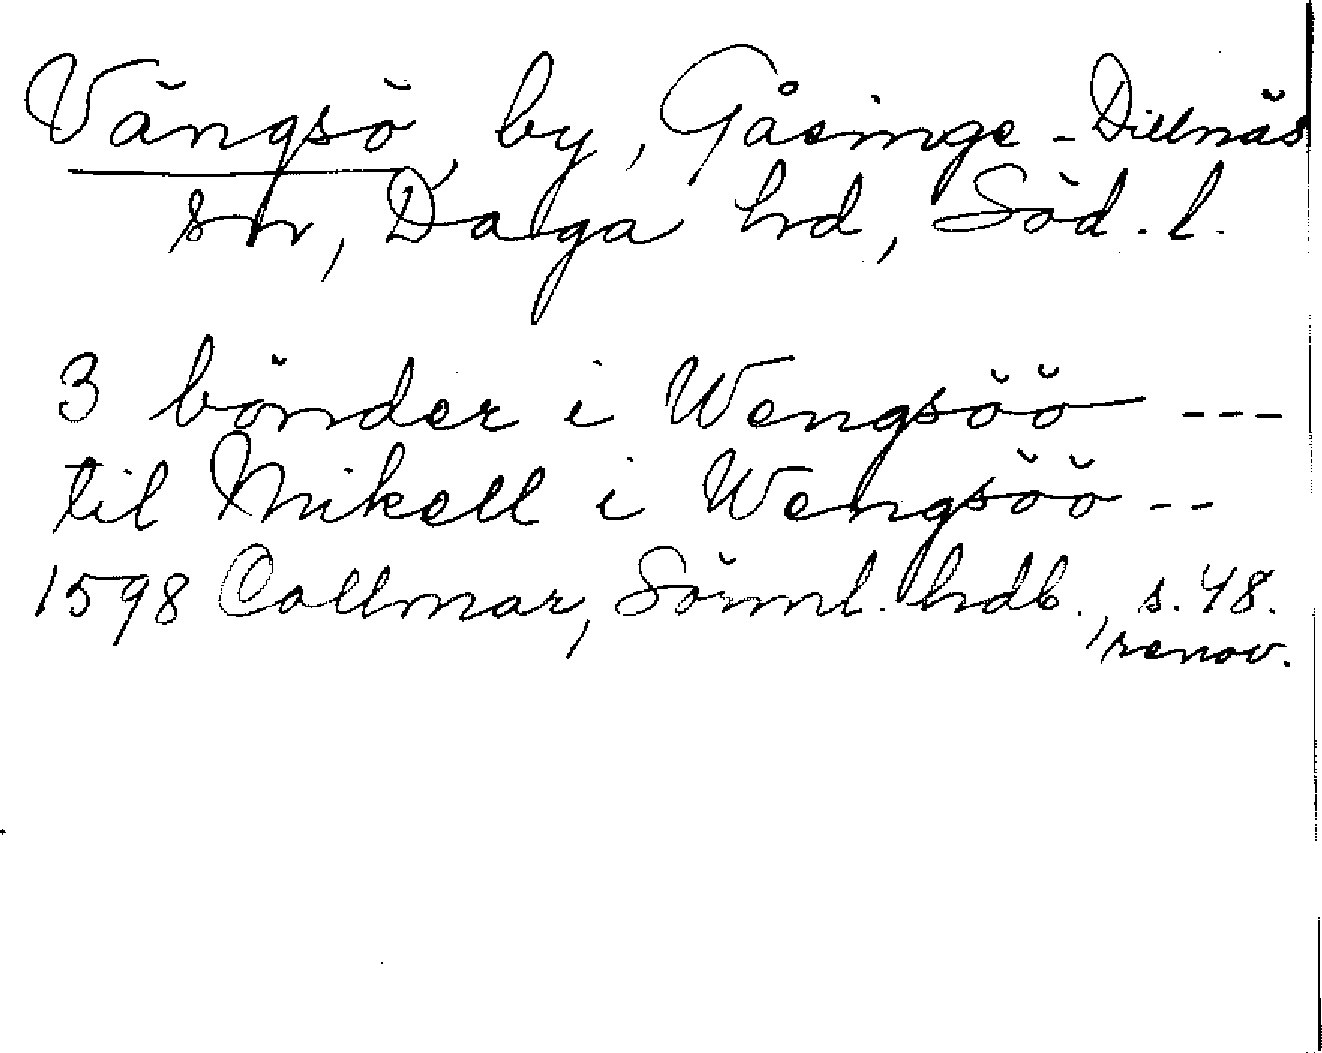 Vängsö, by, Gåsinge-Dillnäs
sn, Daga hd, Söd. l.
3 bönder i Wengsöö ---
til Mikell i Wengsöö --
1598 Collmar, Sörml. hdb., s. 48.
renov.